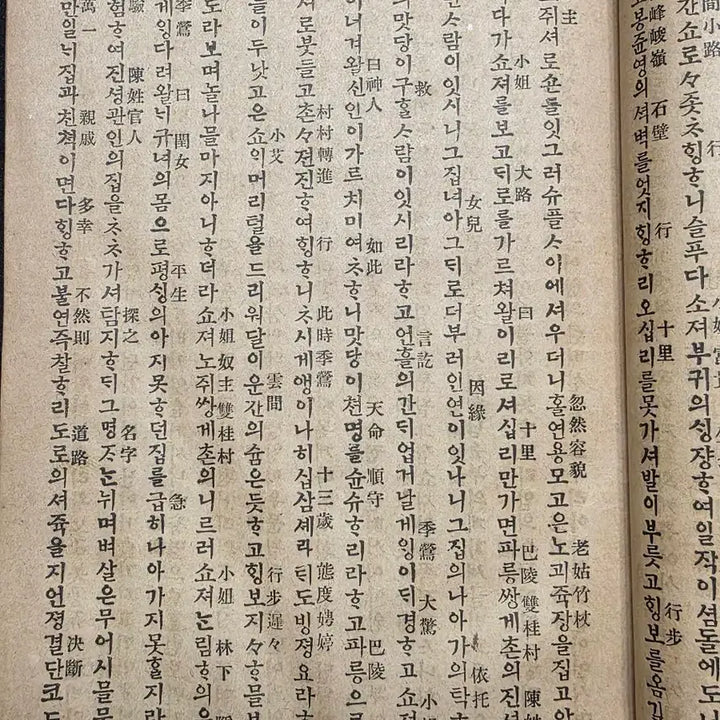 間小路 行
간쇼로々좃ᄎᆞ힝ᄒᆞ니슬푸다소져부귀의싱쟝ᄒᆞ여일작이셤돌에도
峰峻嶺 石壁 行 十里 行步
고봉쥰영의셔벽를엇지힝ᄒᆞ리오십리를못가셔발이부릇고힝보를옴기
主 忽然容貌 老姑竹杖
쥐셔로숀돌잇그러슈플ᄉᆞ이에셔우더니홀연용모고은노괴쥭쟝을집고
小姐 大路 曰 十里 巴陵雙桂村 陳姓
다가쇼져를보고ᄃᆡ로를가르쳐왈이리로셔십리만가면파릉쌍계촌의진셩
女兒 因緣 依托
ᄉᆞ람이잇시니그집녀아그ᄃᆡ로더부러인연이잇나니그집의나아가의탁
救 言訖 季鶯 大驚 小
의맛당이구ᄒᆞᆯᄉᆞ람이잇시리라ᄒᆞ고언흘의간ᄃᆡ업거날계잉이ᄃᆡ경ᄒᆞ고쇼져
曰神人 如此 天命 順守 巴陵
이니겨왈신인이가르치미여ᄎᆞᄒᆞ니맛당이텬명를슌슈ᄒᆞ리라ᄒᆞ고파릉으로
村村轉進 行 此時季鶯 十三歲 態度娉婷
셔로붓들고촌々젼진ᄒᆞ여힝ᄒᆞ니ᄎᆞ시계앵이나히십삼셰라ᄐᆡ도빙졍요라ᄒᆞ
小艾 雲間 行步遲々
들이두낫고은쇼ᄋᆡ머리털을드리워달이운간의숨은듯ᄒᆞ고힝보지々ᄒᆞ믈보
小姐奴主雙桂村 小姐 林下
도라보며놀나믈마지아니ᄒᆞ더라쇼져노쥐쌍계촌의니르러쇼져ᄂᆞᆫ림하의
季鶯 曰 閨女 平生 急
계잉다려왈ᄂᆡ규녀의몸으로평싱의아지못ᄒᆞ던집를급히나아가지못ᄒᆞᆯ지라
驗 陳姓官人 探之 名字
험ᄒᆞ여진셩관인의집을ᄎᆞᄎᆞ가셔탐지ᄒᆞᄃᆡ그명ᄌᆞᄂᆞᆫ뉘며벼살은무어시믈
萬一 親戚 多幸 不然則 道路 決斷
만일ᄂᆡ집과친쳑이면다힝ᄒᆞ고불연즉찰ᄒᆞ리도로의셔쥭을지언졍결단코